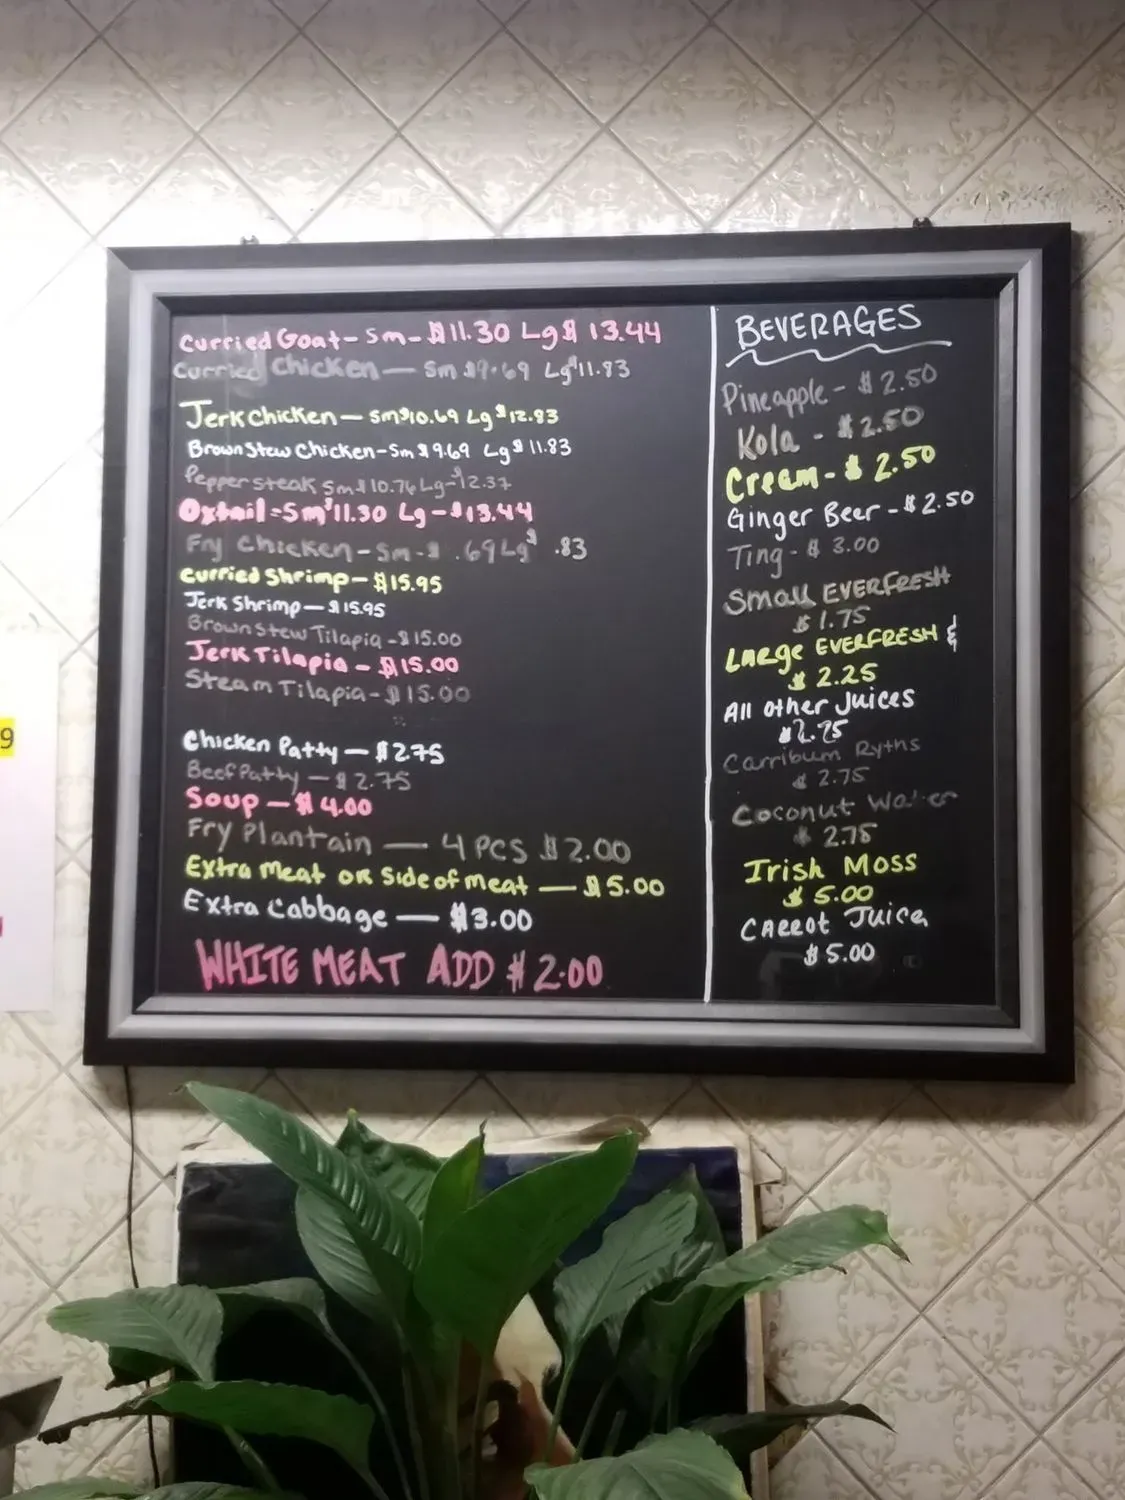 Curried Goat - Sm - $11.30 Lg $ 13.44
Curried Chicken — Sm $9.69 Lg $11.83
Jerk Chicken — Sm $10.69 Lg $12.83
Brown Stew Chicken - Sm $9.69 Lg $11.83
Pepper steak Sm $10.76 Lg - $12.37
Oxtail = Sm $11.30 Lg - $13.44
Fry Chicken - Sm - $ .69 Lg $ .83
Curried Shrimp - $15.95
Jerk Shrimp — $15.95
Brown Stew Tilapia - $15.00
Jerk Tilapia - $15.00
Steam Tilapia - $15.00
Chicken Patty — $2.75
Beef Patty — $2.75
Soup — $4.00
Fry Plantain — 4 PCS $2.00
Extra Meat OR Side of meat — $5.00
Extra Cabbage — $3.00
WHITE MEAT ADD $2.00
BEVERAGES
Pineapple - $2.50
Kola - $2.50
Cream - $2.50
Ginger Beer - $2.50
Ting - $3.00
Small EVERFRESH
$1.75
Large EVERFRESH &
$2.25
All other Juices
Carribum Ryths
$2.75
Coconut Water
$2.75
Irish Moss
$5.00
CARROT Juice
$5.00
9